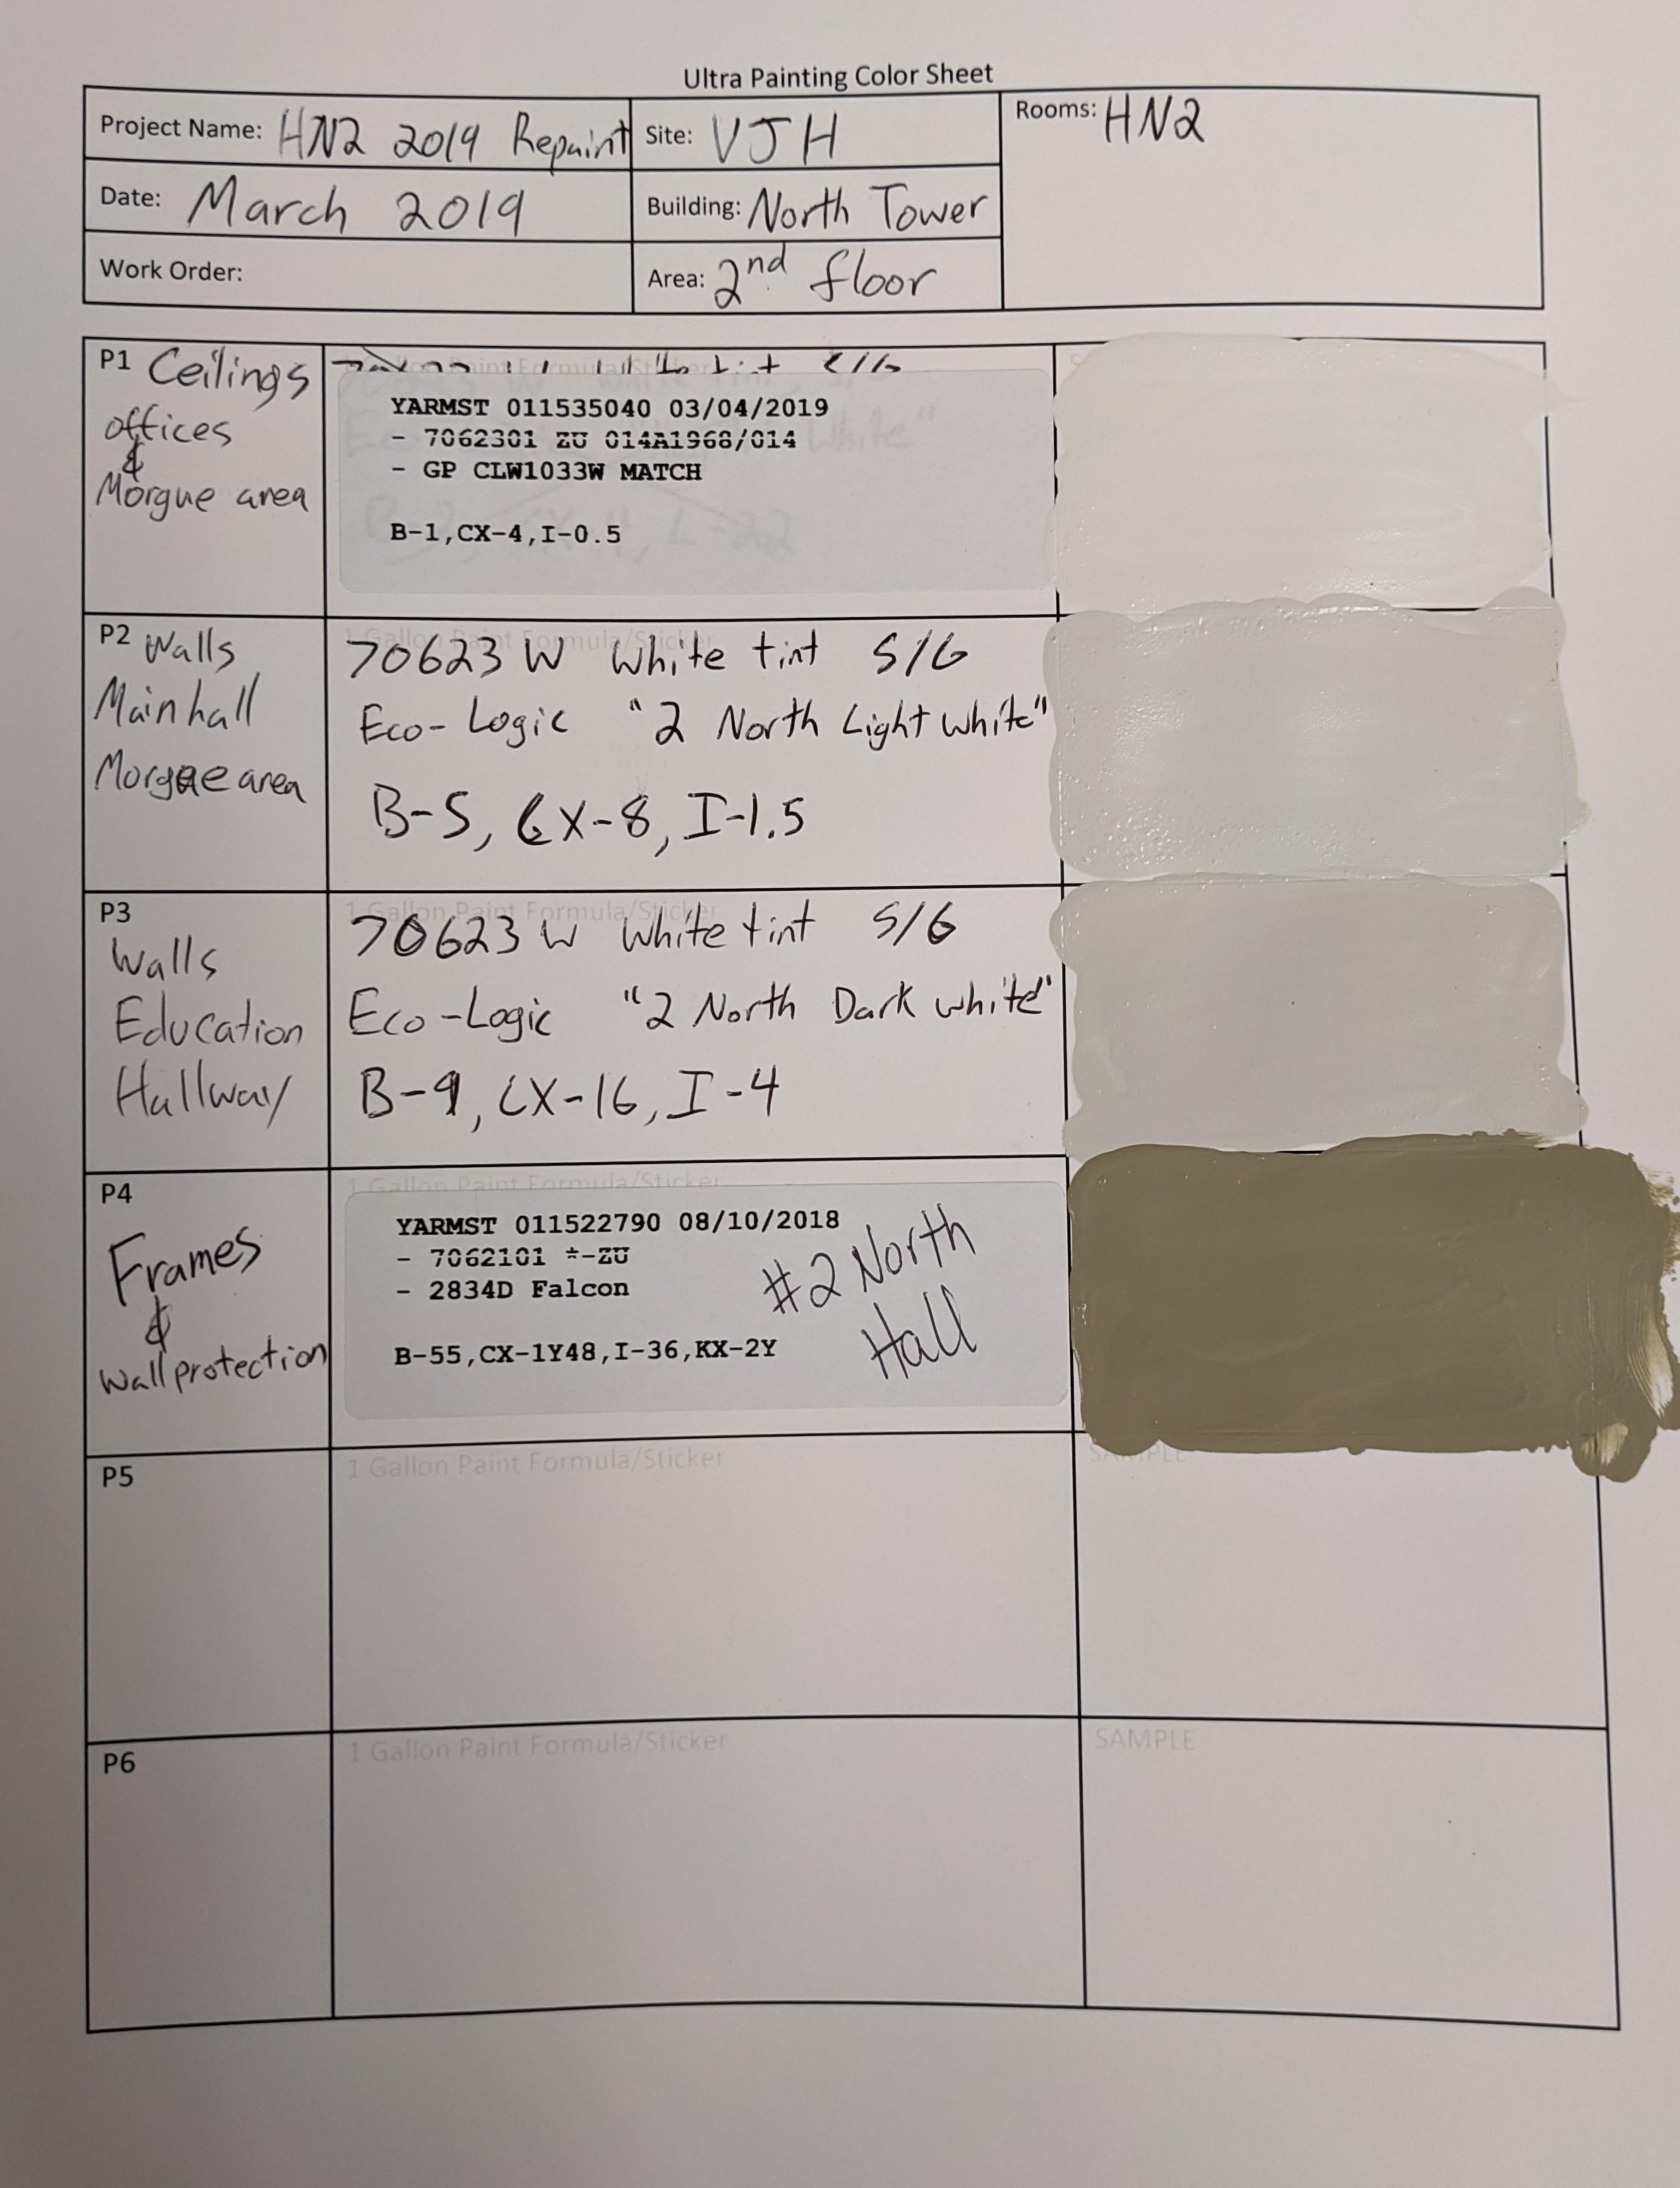 Ultra Painting Color Sheet
Project Name: HN2 2019 Repaint
Site: VJH
Rooms: HN2
Date: March 2019
Building: North Tower
Work Order:
Area: 2nd floor
P1 Ceilings
offices
&
Morgue area
YARMST 011535040 03/04/2019
- 7062301 ZU 014A1968/014
- GP CLW1033W MATCH
B-1,CX-4,I-0.5
P2 Walls
Main hall
Morgue area
1 Gallon Paint Formula/Sticker
70623 W White tint S/G
Eco-Logic "2 North Light White"
B-5, CX-8, I-1.5
P3
Walls
Education
Hallway
1 Gallon Paint Formula/Sticker
70623 W White tint S/G
Eco-Logic "2 North Dark white"
B-9, CX-16, I-4
P4
Frames
&
wall protection
1 Gallon Paint Formula/Sticker
YARMST 011522790 08/10/2018
- 7062101 *-ZU
- 2834D Falcon
B-55,CX-1Y48,I-36,KX-2Y
#2 North
Hall
P5
1 Gallon Paint Formula/Sticker
SAMPLE
P6
1 Gallon Paint Formula/Sticker
SAMPLE